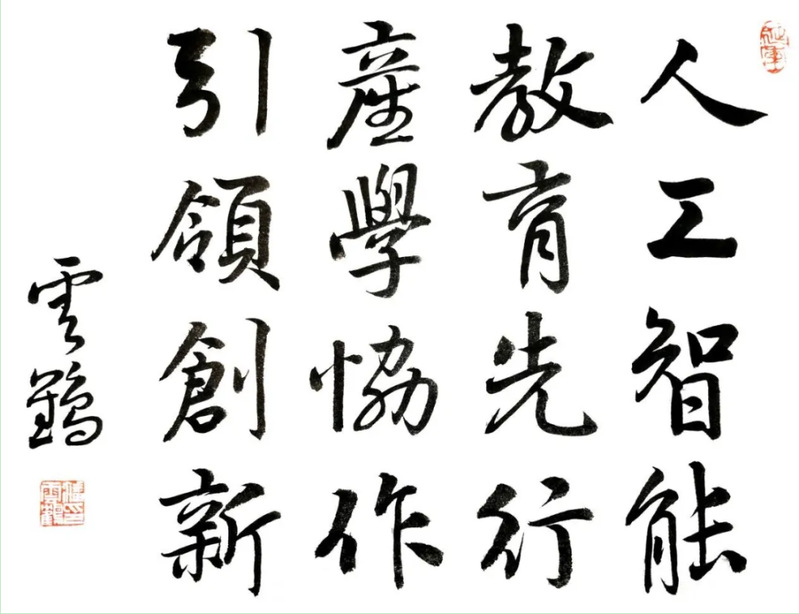 人工智能
教育先行
產學恊作
引領創新
雲鶴